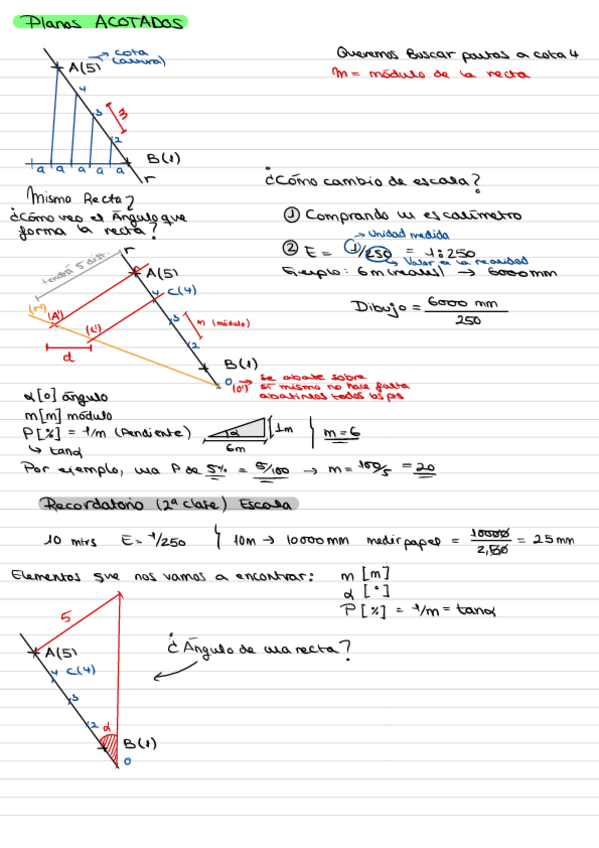 Planos ACOTADOS
cota
(altura)
A(5)
4
3
m
2
B(1)
a a a a a
r
Queremos Buscar puntos a cota 4
m = módulo de la recta
Misma Recta?
¿Cómo veo el Ángulo que
forma la recta?
¿Cómo cambio de escala?
① Comprando un escalímetro
→ Unidad medida
② E = 1/250 = 1:250
→ Valor en la realidad
Ejemplo: 6m (reales) → 6000mm
Dibujo = 6000 mm
250
r
tendrá 5 dist.
A(5)
4 C(4)
(r')
(A')
(C')
3
m (módulo)
2
d
B(1)
0 (0') → se abate sobre
sí mismo no hace falta
abatirlos todos los
α [o] ángulo
m[m] módulo
P[%] = 1/m (Pendiente)
↳ tanα
α
1m
6m
m=6
Por ejemplo, una P de 5% = 5/100 → m = 100/5 = 20
Recordatorio (2ª clase) Escala
10 mtrs E= 1/250 10m → 10000mm medir papel = 10000
2,50
= 25mm
Elementos que nos vamos a encontrar: m [m]
α [°]
P[%] = 1/m = tanα
5
A(5)
4 C(4)
3
2
α
B(1)
0
¿Ángulo de una recta?